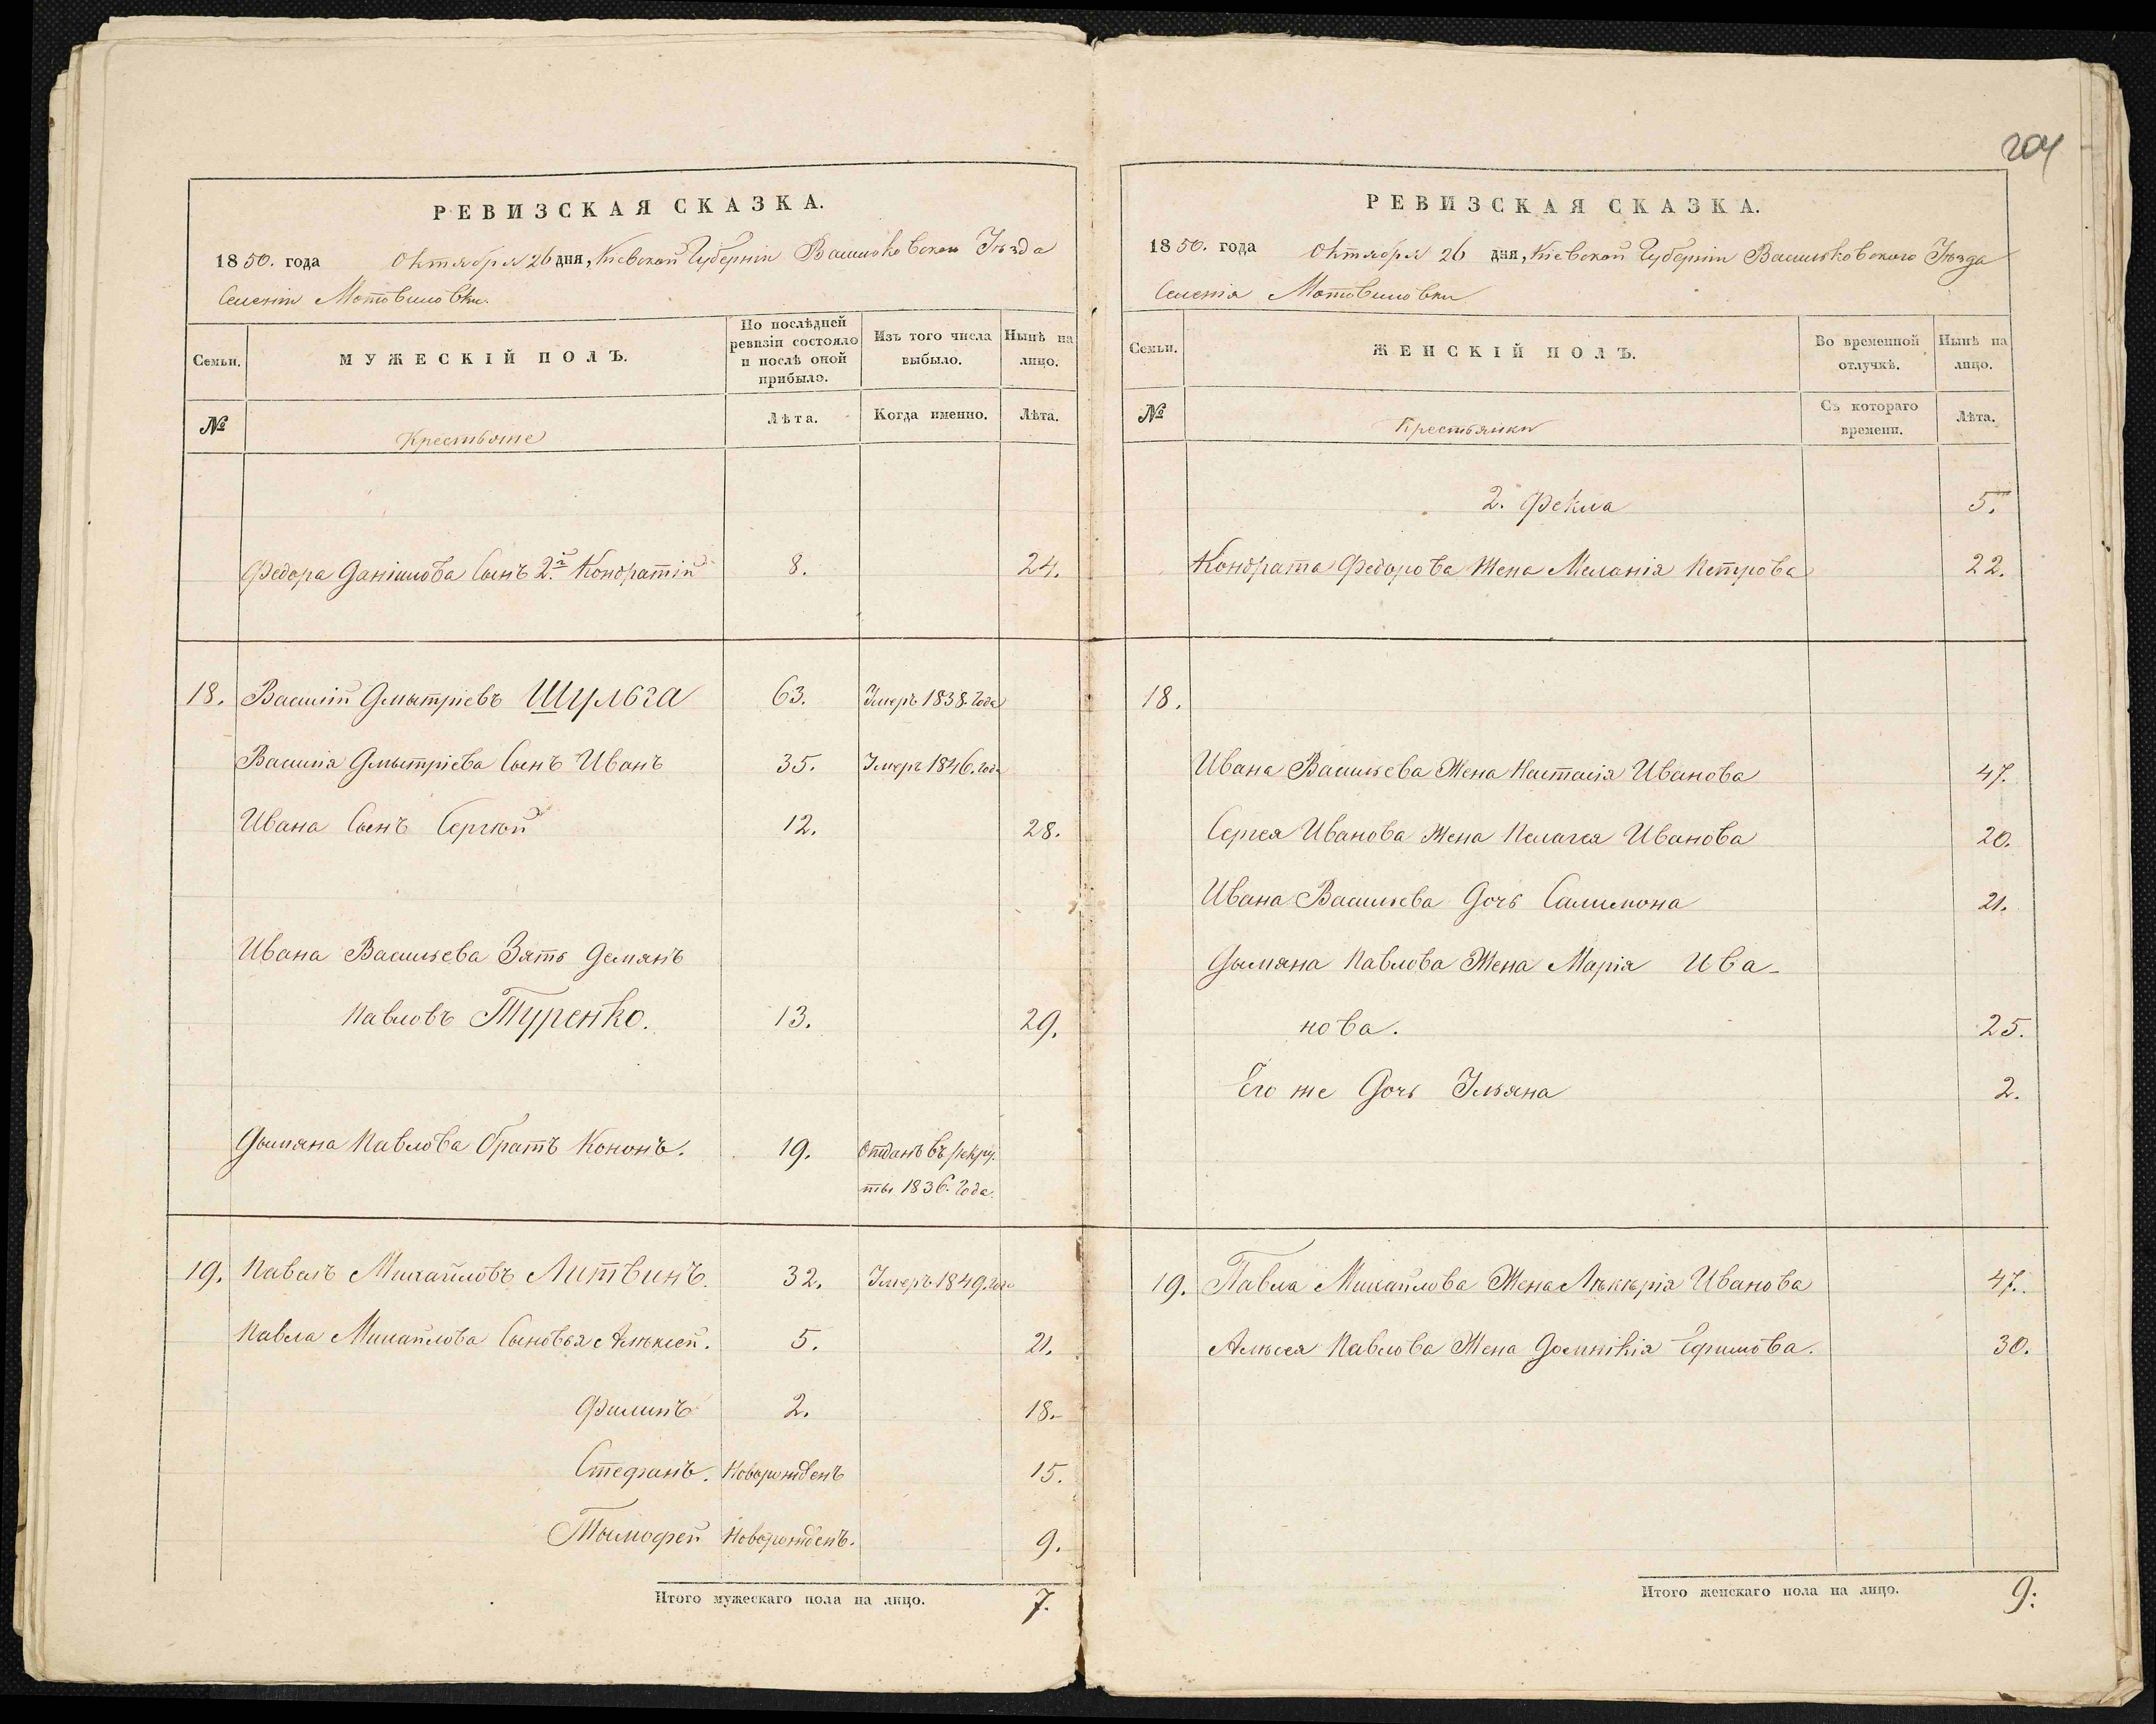 РЕВИЗСКАЯ СКАЗКА.
1850. года Октября 26 дня, Кіевской Губерніи Васильковскаго Уѣзда
Селенія Мотовиловки.
Семьи.
МУЖЕСКІЙ ПОЛЪ.
По послѣдней ревизіи состояло и послѣ оной прибыло.
Изъ того числа выбыло.
Нынѣ на лицо.
№
Крестьяне
Лѣта.
Когда именно.
Лѣта.
Федора Даніилова Сынъ 2.й Кондратій 8. 24.
18. Василій Дмытріевъ Шульга 63. Умеръ 1838. Года
Василія Дмытріева Сынъ Иванъ 35. Умеръ 1846. года
Ивана Сынъ Сергѣй 12. 28.
Ивана Васильева Зять Демянъ
Павловъ Туренко. 13. 29.
Дымяна Павлова братъ Кононъ. 19. Отданъ въ рекру-
ты 1836. Года.
19. Павелъ Михайловъ Литвинъ. 32. Умеръ 1849. года
Павла Михайлова Сыновья Алѣксей. 5. 21.
Филипъ 2. 18.
Стефанъ. Новорожденъ 15.
Тымофей Новорожденъ. 9.
Итого мужескаго пола на лицо. 7.
204
РЕВИЗСКАЯ СКАЗКА.
1850. года Октября 26 дня, Кіевской Губерніи Васильковскаго Уѣзда
Селенія Мотовиловки
Семьи.
ЖЕНСКІЙ ПОЛЪ.
Во временной отлучкѣ.
Нынѣ на лицо.
№
Крестьянки
Съ котораго времени.
Лѣта.
2. Фекла 5.
Кондрата Федорова Жена Меланія Петрова 22.
18.
Ивана Васильева Жена Настасія Иванова 47.
Сергея Иванова Жена Пелагея Иванова 20.
Ивана Васильева Дочь Салимона 21.
Дымяна Павлова Жена Марія Ива-
нова. 25.
Его же Дочь Ульяна 2.
19. Павла Михайлова Жена Лѣкѣрія Иванова 47.
Алѣксея Павлова Жена Домникія Ефимова. 30.
Итого женскаго пола на лицо. 9: